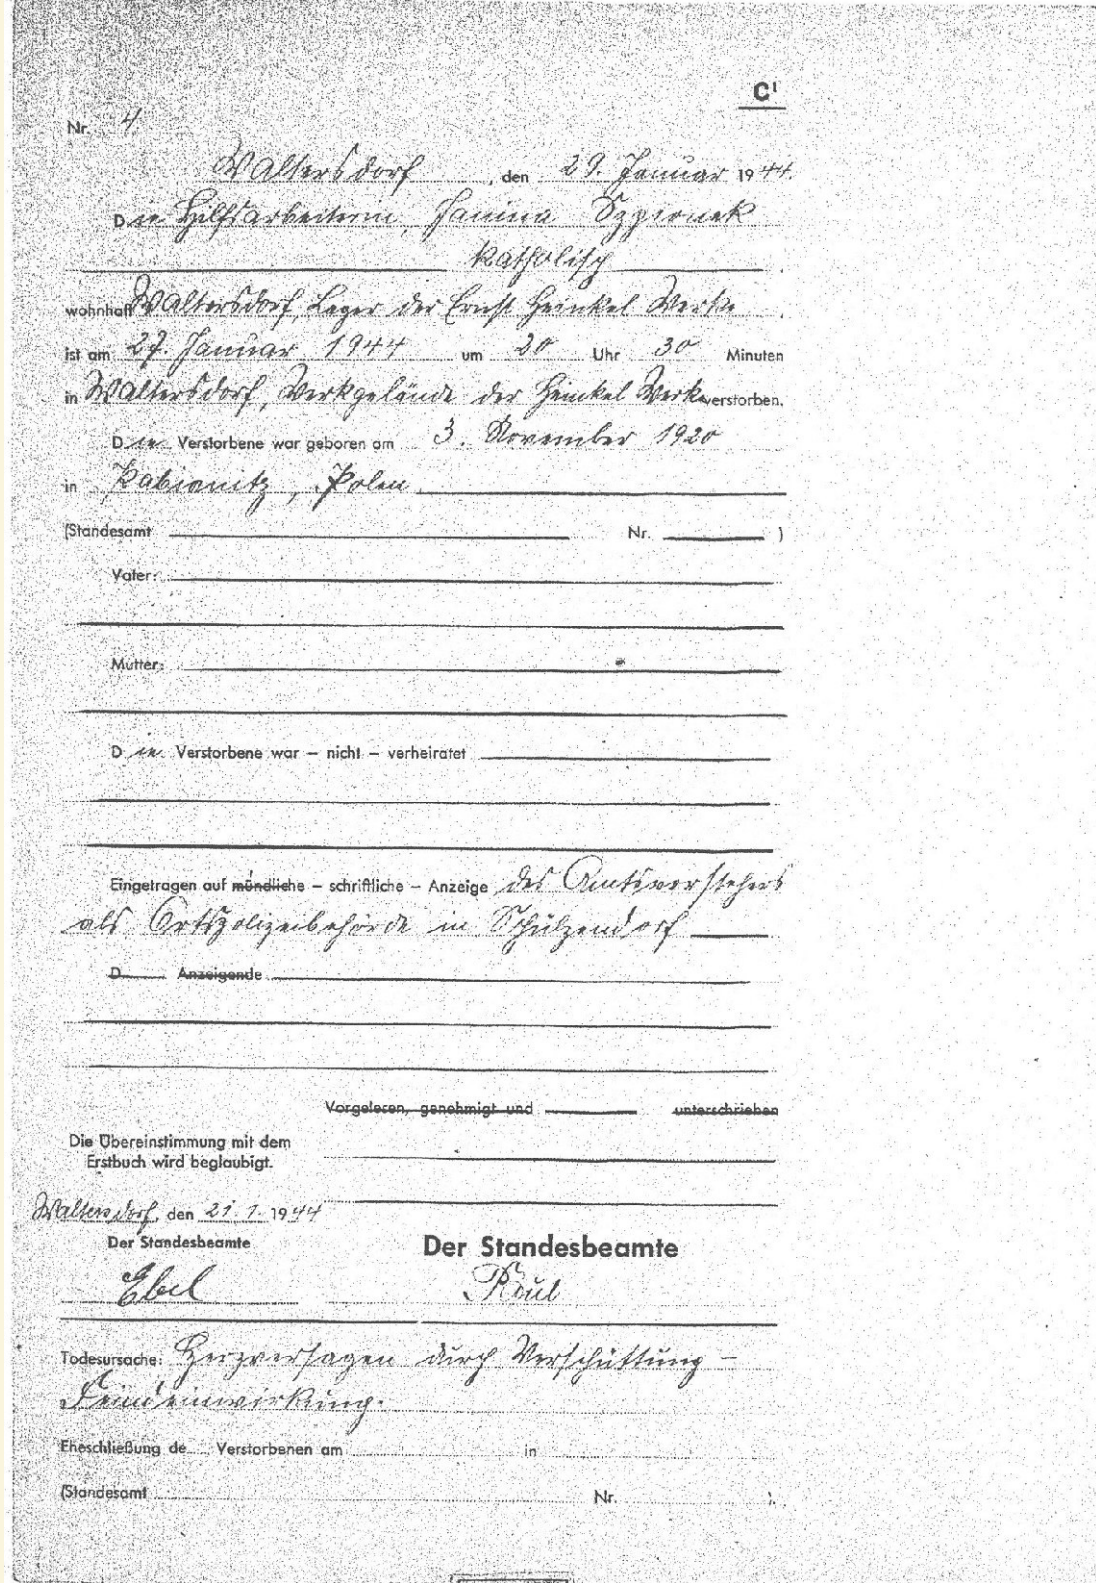 C¹
Nr. 4
Waltersdorf, den 29. Januar 1944.
Die Hilfsarbeiterin, Janina
katholisch
wohnhaft Waltersdorf, Lager der Ernst Heinkel Werke,
ist am 27. Januar 1944 um 20 Uhr 30 Minuten
in Waltersdorf, Werkgelände der Heinkel Werke verstorben.
Die Verstorbene war geboren am 3. November 1920
in Pabianitz, Polen
(Standesamt Nr. )
Vater:
Mutter:
Die Verstorbene war – nicht – verheiratet
Eingetragen auf mündliche – schriftliche – Anzeige des Amtsvorstehers
als Ortspolizeibehörde in Schulzendorf
D Anzeigende
Vorgelesen, genehmigt und unterschrieben
Die Übereinstimmung mit dem
Erstbuch wird beglaubigt.
Waltersdorf, den 1. 1944
Der Standesbeamte
Der Standesbeamte
Ebel
Todesursache: Herzversagen durch Verschüttung –
Feindeinwirkung.
Eheschließung de Verstorbenen am in
(Standesamt Nr. ).